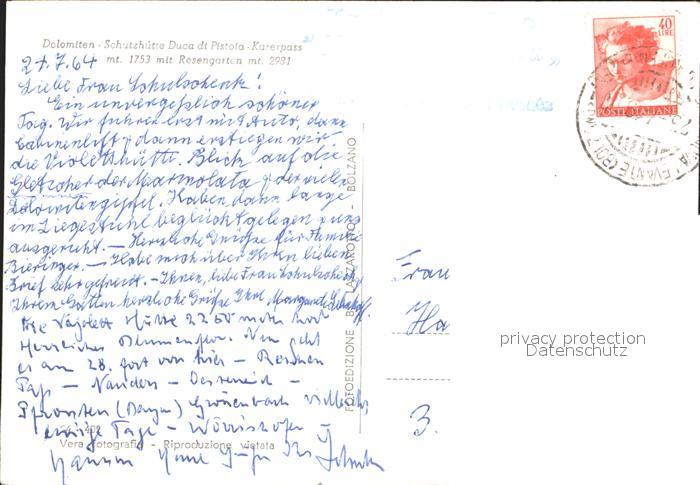 Dolomiten - Schutzhütte Duca di Pistoia - Karerpass
mt. 1753 mit Rosengarten mt. 2981
27.7.64
Liebe Frau Schulschenk!
Ein unvergeßlich schöner
Tag. Wir fuhren erst mit Auto, dann
dann erstiegen wir
die Violetthütte. Blick auf die
Gletscher der Marmolata & der vielen
Dolomitengipfel. Haben dann lange
im Liegestuhl beglückt gelegen & uns
ausgeruht. — Herzliche Grüße für Familie
Bieringer. — Habe mich über Ihren lieben
Brief sehr gefreut. — Ihnen, liebe Frau Schulschenk,
Ihrem Gatten herzliche Grüße Ihre Margarete
Die Vajolett Hütte 2250 mtr hoch
Herrlicher Blumenflor. Nun geht
es am 28. fort von hier — Reschen
Paß — Nauders — Oesterreich —
Pfronten Grönenbach vielleicht
einige Tage — Wörishofen
Vera Fotografia - Riproduzione vietata
FOTOEDIZIONE - BOLZANO
40
LIRE
POSTE ITALIANE
LEVANTE (BOLZ
Frau
Ha
B.
privacy protection
Datenschutz